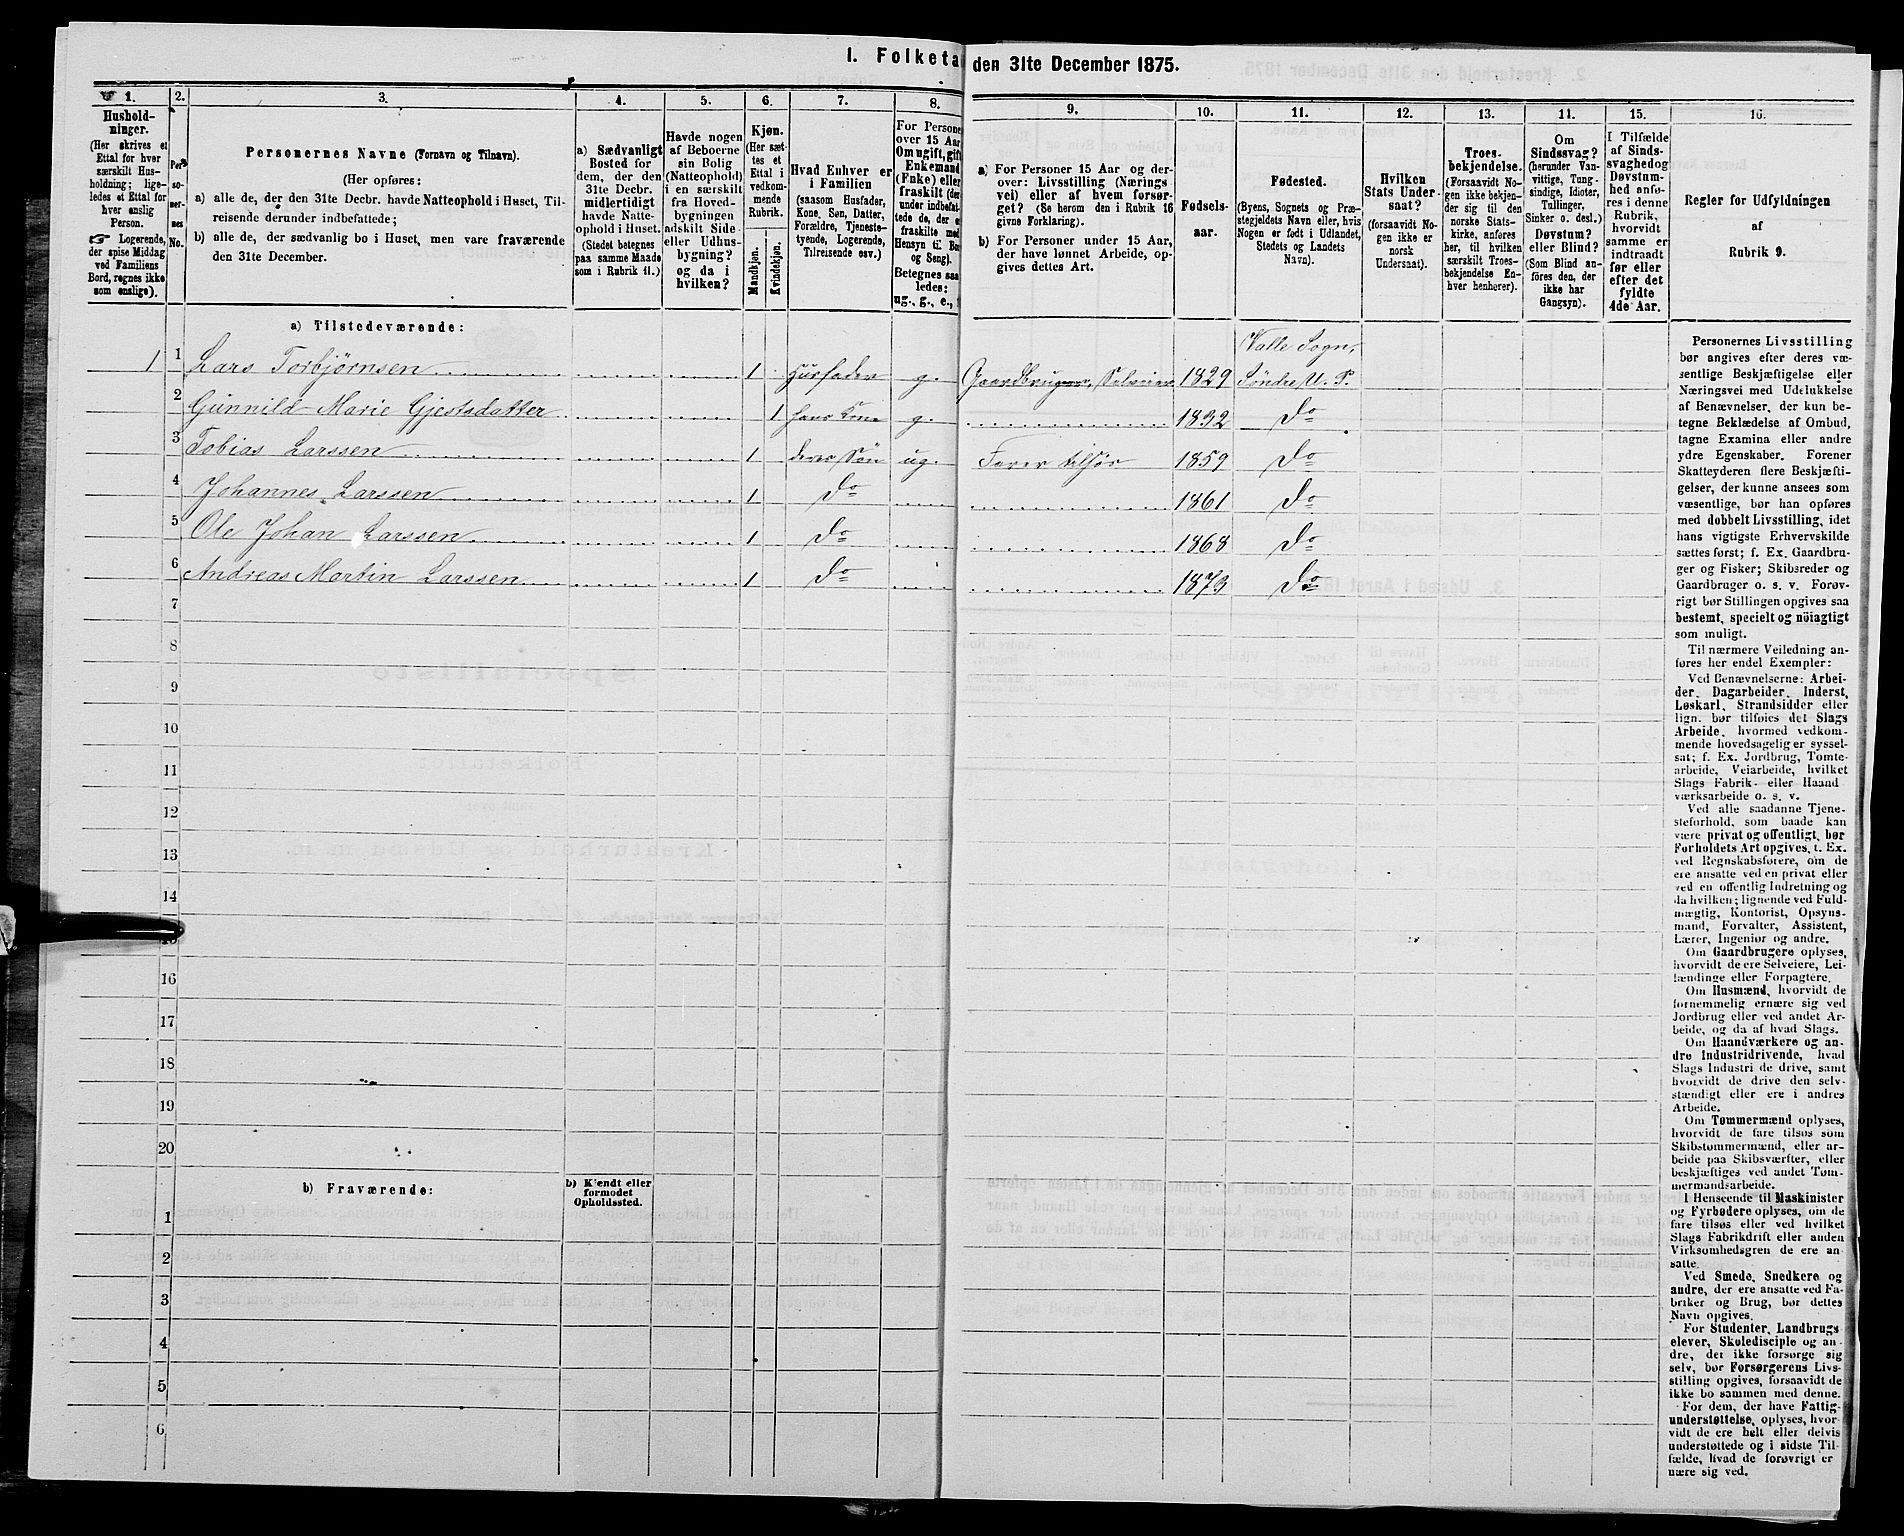 I. Folketa den 31te December 1875.
1. 2. 3. 4. 5. 6. 7. 8. 9. 10. 11. 12. 13. 14. 15. 16.
Hushold-
ninger.
(Her skrives et
Ettal for hver
særskilt Hus-
holdning; lige-
ledes et Ettal for
hver enslig
Person.
☞ Logerende,
der spise Middag
ved Familiens
Bord, regnes ikke
som enslige).
Per-
so-
ner-
nes
No.
Personernes Navne (Fornavn og Tilnavn).
(Her opføres:
a) alle de, der den 31te Decbr. havde Natteophold i Huset, Til-
reisende derunder indbefattede;
b) alle de, der sædvanlig bo i Huset, men vare fraværende
den 31te December.
a) Sædvanligt
Bosted for
dem, der den
31te Decbr.
midlertidigt
havde Natte-
ophold i Huset.
(Stedet betegnes
paa samme Maade
som i Rubrik 11.)
Havde nogen
af Beboerne
sin Bolig
(Natteophold)
i en særskilt
fra Hoved-
bygningen
adskilt Side-
eller Udhus-
bygning?
og da i
hvilken?
Kjøn.
(Her sæt-
tes et
Ettal i
vedkom-
mende
Rubrik.
Mandkjøn.
Kvindekjøn.
Hvad Enhver er
i Familien
(saasom Husfader,
Kone, Søn, Datter,
Forældre, Tjeneste-
tyende, Logerende,
Tilreisende osv.)
For Persone
over 15 Aar
Om ugift, gift
Enkemand
(Enke) eller
fraskilt (der
under indbefat-
tede de, der e
fraskilte med
Hensyn til Bor
og Seng).
Betegnes saa
ledes:
ug., g., e.,
a) For Personer 15 Aar og der-
over: Livsstilling (Nærings
vei) eller af hvem forsør-
get? (Se herom den i Rubrik 16
givne Forklaring).
b) For Personer under 15 Aar,
der have lønnet Arbeide, op-
gives dettes Art.
Fødsels-
aar.
Fødested.
(Byens, Sognets og Præ-
stegjeldets Navn eller, hvis
Nogen er født i Udlandet,
Stedets og Landets
Navn).
Hvilken
Stats Under-
saat?
(forsaavidt No-
gen ikke er
norsk
Undersaat).
Troes-
bekjendelse.
(Forsaavidt No-
gen ikke bekjen-
der sig til den
norske Stats-
kirke, anføres
her, til hvilken
særskilt Troes-
bekjendelse En-
hver henhører).
Om
Sindssvag?
(herunder Van-
vittige, Tung-
sindige, Idioter,
Tullinger,
Sinker o. desl.)
Døvstum?
eller Blind?
(Som Blind an-
føres den, der
ikke har
Gangsyn).
I Tilfælde
af Sinds-
svaghed og
Døvstum-
hed anfø-
res i denne
Rubrik,
hvorvidt
samme er
indtraadt
før eller
efter det
fyldte
4de Aar.
Regler for Udfyldningen
af
Rubrik 9.
a) Tilstedeværende:
1 1 Lars Torbjørnsen 1 Husfader g. Gaardbruger, Selveier 1829 Valle Sogn, Søndre U. P.
2 Gunnild Marie Gjestsdatter 1 hans Kone g. 1832 Do
3 Tobias Larssen 1 deres Søn ug. Farer tilsøs 1859 Do
4 Johannes Larssen 1 Do 1861 Do
5 Ole Johan Larssen 1 Do 1868 Do
6 Andreas Martin Larssen 1 Do 1873 Do
7
8
9
10
11
12
13
14
15
16
17
18
19
20
b) Fraværende:
b) Kjendt eller
formodet
Opholdssted.
1
2
3
4
5
6
Personernes Livsstilling
bør angives efter deres væ-
sentlige Beskjæftigelse eller
Næringsvei med Udelukkelse
af Benævnelser, der kun be-
tegne Beklædelse af Ombud,
tagne Examina eller andre
ydre Egenskaber. Forener
Skatteyderen flere Beskjæfti-
gelser, der kunne ansees som
væsentlige, bør han opføres
med dobbelt Livsstilling, idet
hans vigtigste Erhvervskilde
sættes først; f. Ex. Gaardbru-
ger og Fisker; Skibsreder og
Gaardbruger o. s. v. Forøv-
rigt bør Stillingen opgives saa
bestemt, specielt og nøiagtigt
som muligt.
Til nærmere Veiledning an-
føres her endel Exempler:
Ved Benævnelserne: Arbei-
der, Dagarbeider, Inderst,
Løskarl, Strandsidder eller
lign. bør tilføies det Slags
Arbeide, hvormed vedkom-
mende hovedsagelig er syssel-
sat; f. Ex. Jordbrug, Tomte-
arbeide, Veiarbeide, hvilket
Slags Fabrik- eller Haand
værksarbeide o. s. v.
Ved alle saadanne Tjene-
steforhold, som baade kan
være privat og offentligt, bør
Forholdets Art opgives, t. Ex.
ved Regnskabsførere, om de
ere ansatte ved en privat eller
ved en offentlig Indretning og
da hvilken; lignende ved Fuld-
mægtig, Kontorist, Opsyns-
mand, Forvalter, Assistent,
Lærer, Ingeniør og andre.
Om Gaardbrugere oplyses,
hvorvidt de ere Selveiere, Lei-
lændinge eller Forpagtere.
Om Husmænd, hvorvidt de
fornemmelig ernære sig ved
Jordbrug eller ved andet Ar-
beide, og da af hvad Slags.
Om Haandværkere og an-
dre Industridrivende, hvad
Slags Industri de drive, samt
hvorvidt de drive den selv-
stændigt eller ere i andres
Arbeide.
Om Tømmermænd oplyses,
hvorvidt de fare tilsøs som
Skibstømmermænd, eller ar-
beide paa Skibsværfter, eller
beskjæftiges ved andet Tøm-
mermandsarbeide.
I Henseende til Maskinister
og Fyrbødere oplyses, om de
fare tilsøs eller ved hvilket
Slags Fabrikdrift eller anden
Virksomhedsgren de ere an-
satte.
Ved Smede, Snedkere og
andre, der ere ansatte ved Fa-
briker og Brug, bør dettes
Navn opgives.
For Studenter, Landbrugs-
elever, Skoledisciple og an-
dre, der ikke forsørge sig
selv, bør Forsørgerens Livs-
stilling opgives, forsaavidt de
ikke bo sammen med denne.
For dem, der have Fattig-
understøttelse, oplyses, hvor-
vidt de ere helt eller delvis
understøttede og i sidste Til-
fælde, hvad de forøvrigt er-
nære sig ved.